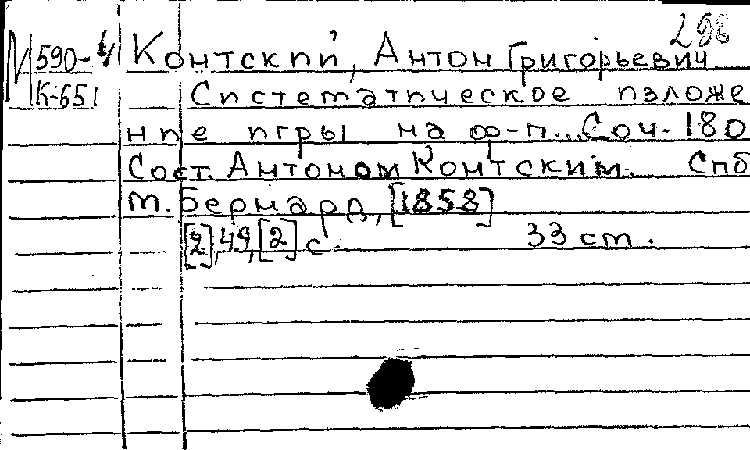 296
М 590-4 Контский, Антон Григорьевич
К-651 Систематическое изложе
ние игры на ф-п... Соч. 180
Сост. Антоном Контским. Спб
М. Бернард, [1858]
[2], 49, [2] с. 33 cm.